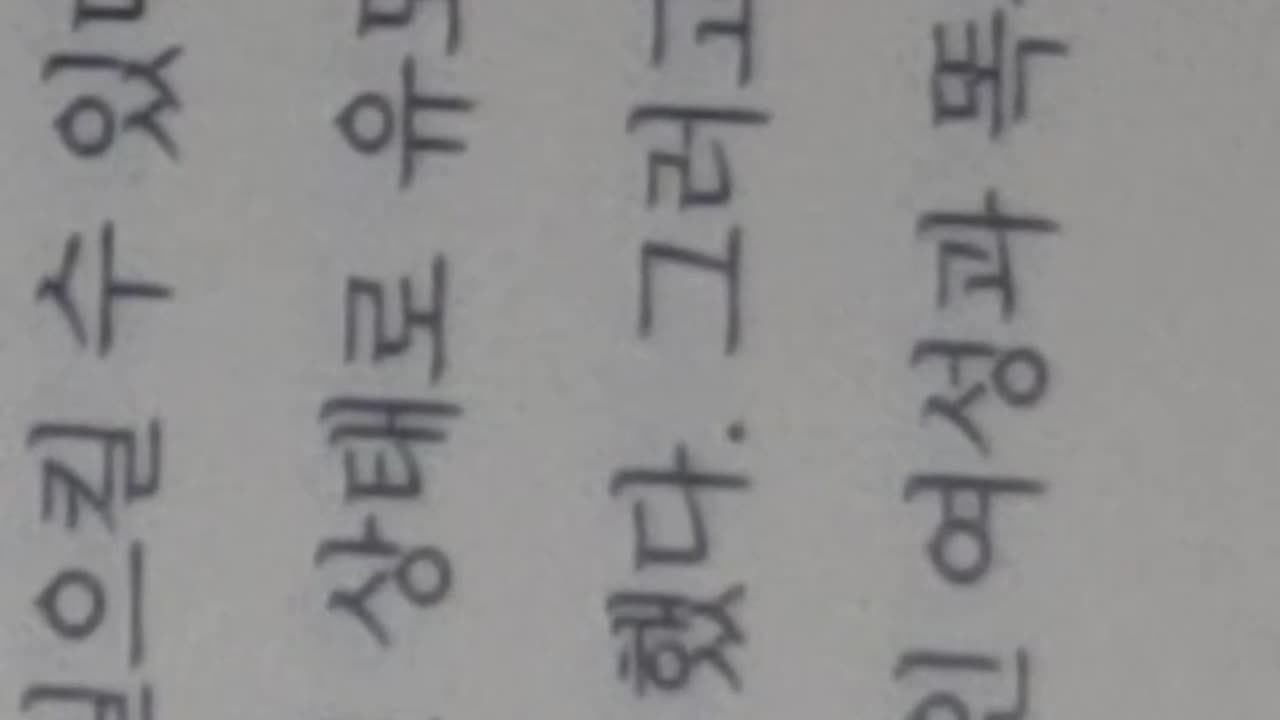 으킬 수 있
상태로 유
했다. 그러
인 여성과 똑